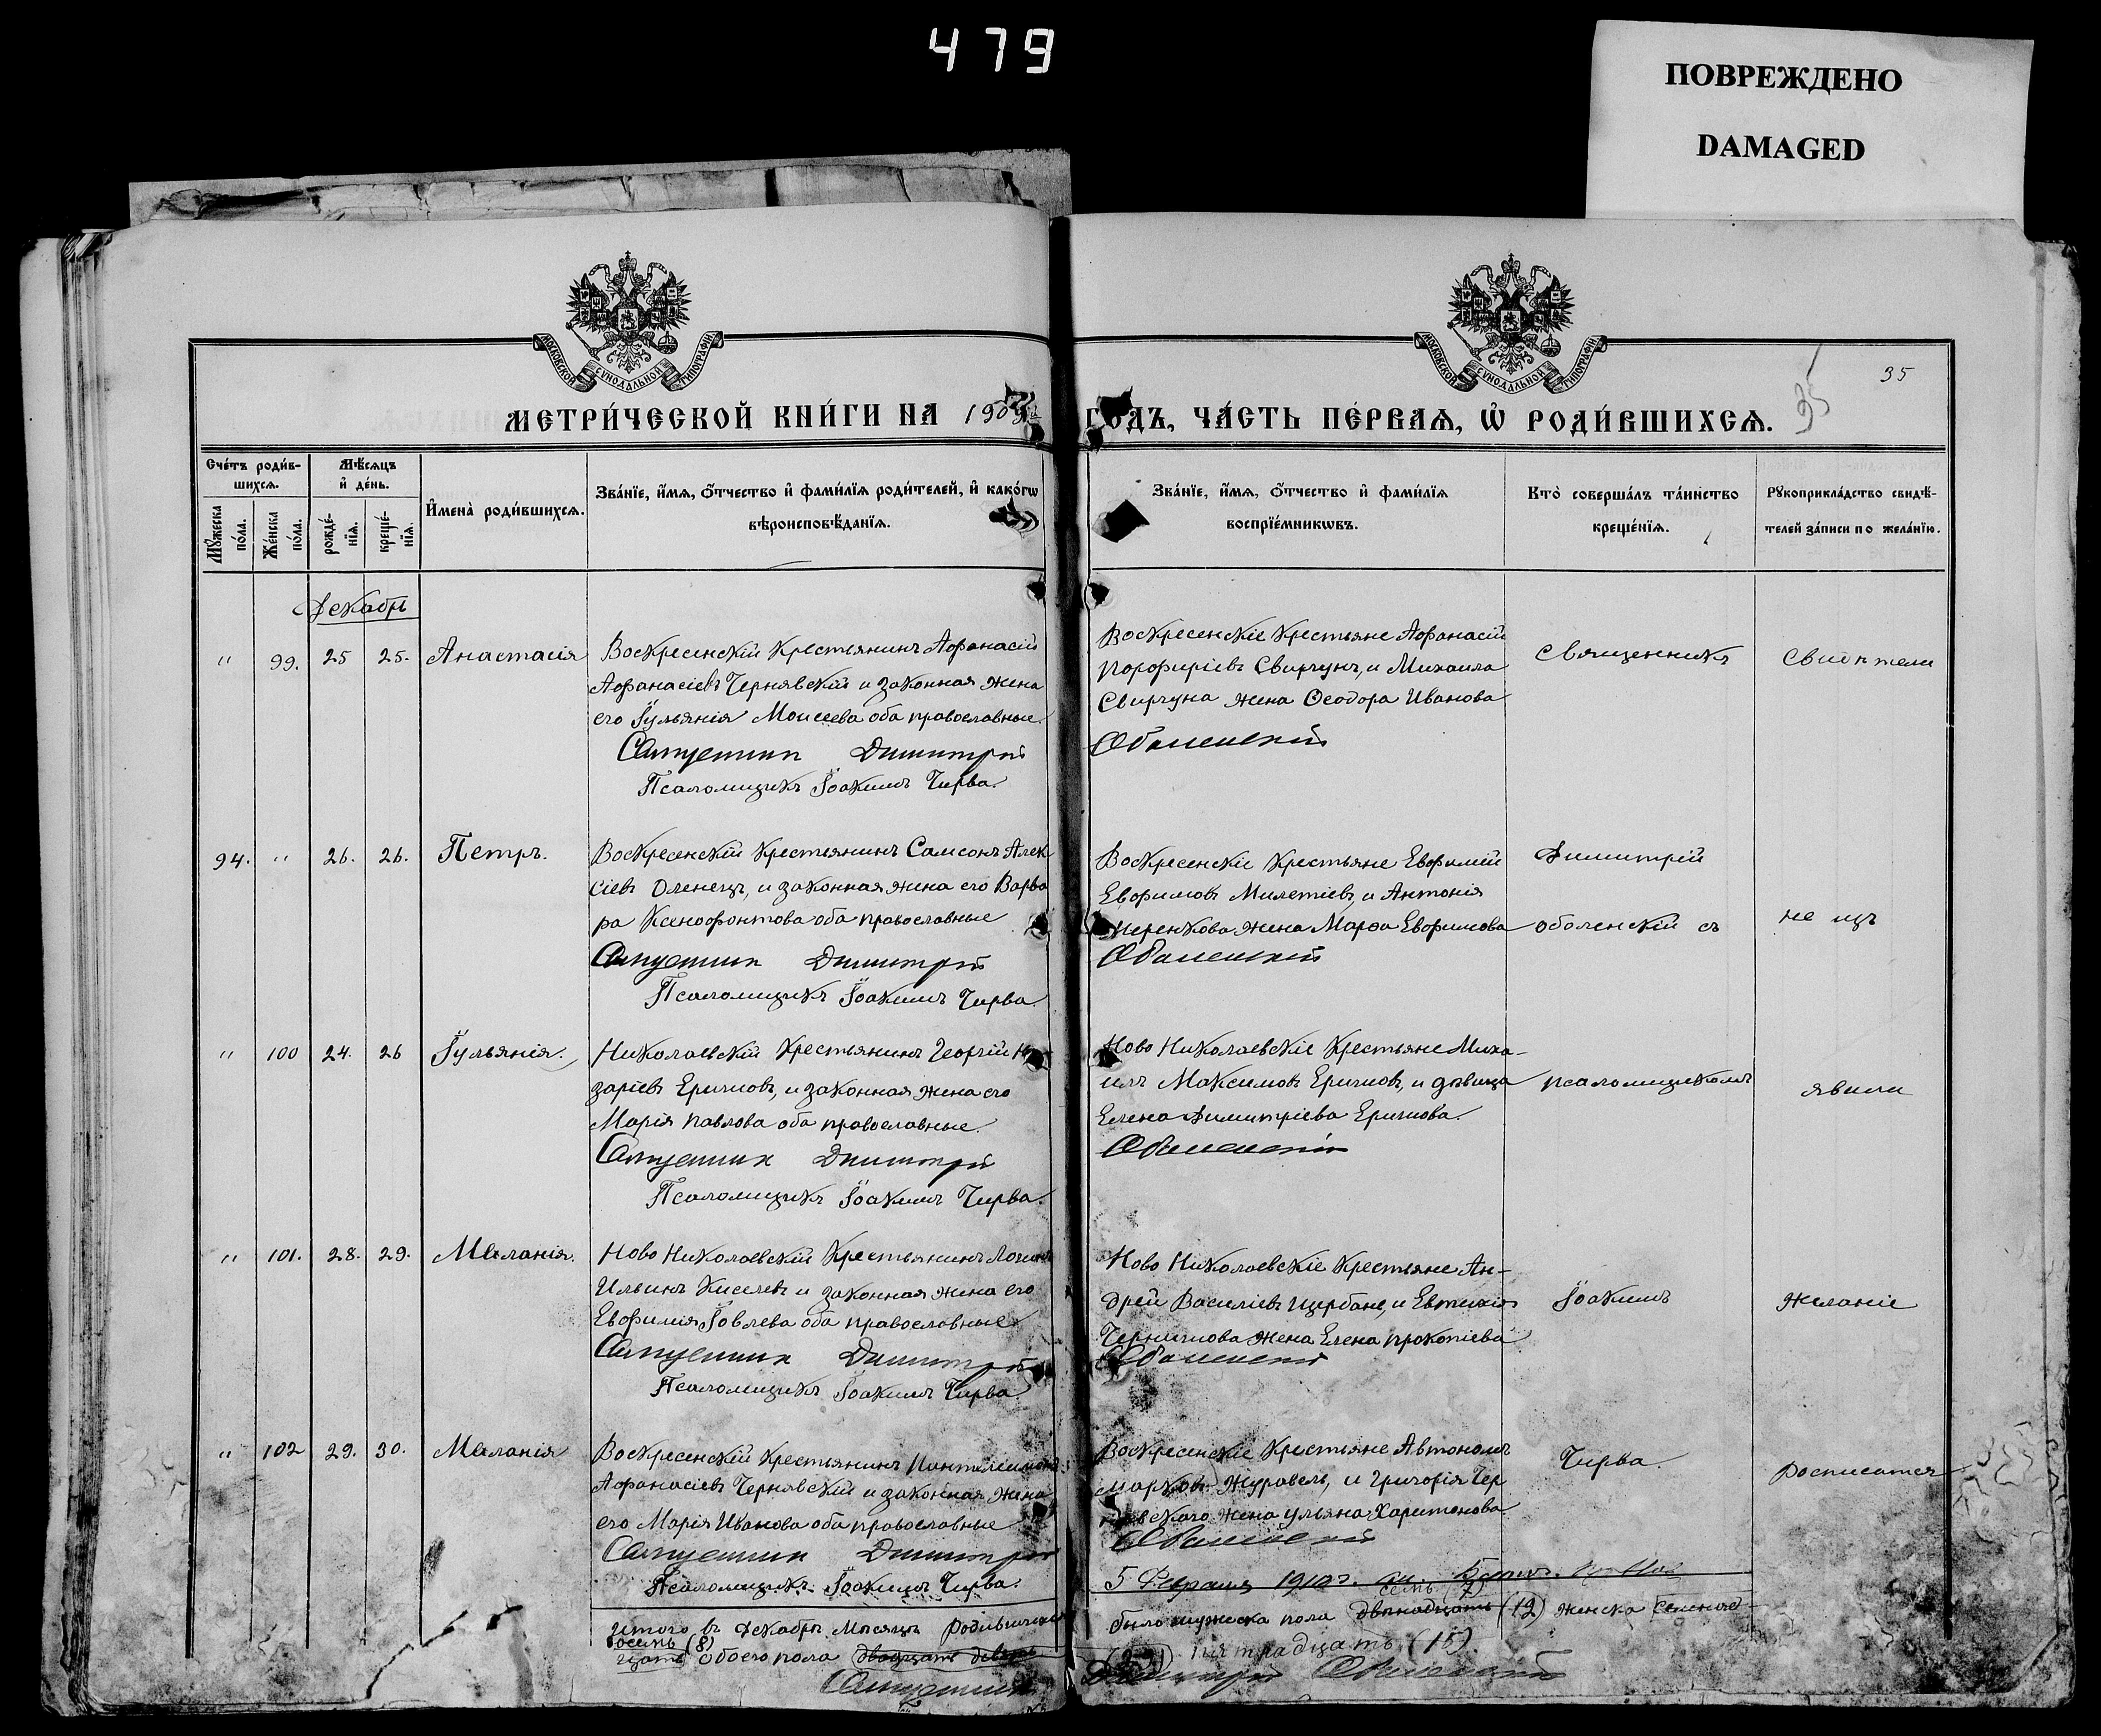 479
ПОВРЕЖДЕНО
DAMAGED
МОСКОВСКОЙ СѴНОДАЛЬНОЙ ТИПОГРАФІИ
МОСКОВСКОЙ СѴНОДАЛЬНОЙ ТИПОГРАФІИ
35
35
МЕТРИ́ЧЕСКОЙ КНИ́ГИ НА 1909
ГОДЪ, ЧА́СТЬ ПЕ́РВАѦ, Ѡ҆ РОДИ́ВШИХСѦ.
Сче́тъ роди́в-
шихсѧ.
Мꙋ́жеска по́ла.
Же́нска по́ла.
Мѣ́сѧцъ
и҆ де́нь.
рожде́-
нїѧ.
креще́-
нїѧ.
И҆мена̀ роди́вшихсѧ.
Зва́нїе, и҆́мѧ, ѻ҆́тчество и҆ фами́лїѧ роди́телей, и҆ како́гѡ
вѣроисповѣ́данїѧ.
Зва́нїе, и҆́мѧ, ѻ҆́тчество и҆ фами́лїѧ
воспрїе́мникѡвъ.
Кто̀ соверша́лъ та́инство
креще́нїѧ.
Рꙋкоприкла́дство свидѣ́-
телей за́писи по жела́нїю.
Декабрь
" 99. 25 25. Анастасія
Воскресенскій крестьянинъ Афанасій
Афанасіевъ Чернявскій и законная жена
его Іульянія Моисеева оба православные.
Священник Димитрій
Псаломщикъ Іоакимъ Чирва.
Воскресенскіе крестьяне Афанасій
Порфиріевъ Свиргунъ, и Михаила
Свиргуна жена Ѳеодора Иванова
Оболенскій
Священникъ
Свидѣтели
94. " 26. 26. Петръ.
Воскресенскій крестьянинъ Самсонъ Алек
сіевъ Оленецъ, и законная жена его Варва
ра Ксенофонтова оба православные
Священник Димитрій
Псаломщикъ Іоакимъ Чирва.
Воскресенскіе крестьяне Евфимій
Евфимовъ Милетіевъ, и Антонія
жена Марфа Евфимова
Оболенскій
Димитрій
Оболенскій съ
не изъ
" 100 24. 26 Іульянія.
Николаевскій крестьянинъ Георгій
заріевъ Еригновъ, и законная жена его
Марія Павлова оба православные.
Священник Димитрій
Псаломщикъ Іоакимъ Чирва.
Ново Николаевскіе крестьяне Миха-
илъ Максимовъ и дѣвица
Елена Димитріева
Оболенскій
псаломщикомъ
явили
" 101. 28. 29. Меланія.
Ново Николаевскій крестьянинъ
Ильинъ Киселевъ и законная жена его
Евфимія Іовлева оба православные
Священник Димитрій
Псаломщикъ Іоакимъ Чирва.
Ново Николаевскіе крестьяне Ан-
дрей Василіевъ Щербане, и Евтихія
жена Елена Прокопіева
Оболенскій
Іоакимъ
желаніе
" 102 29. 30. Меланія
Воскресенскій крестьянинъ Пантелеимонъ
Афанасіевъ Чернявскій и законная жена
его Марія Иванова оба православные
Священник Димитрій
Псаломщикъ Іоакимъ Чирва.
Воскресенскіе крестьяне Автономъ
Марковъ Журавель, и Григорія Чер
нявскаго жена Ульяна Харитонова
Оболенскій
Чирва.
росписатся
5 Февраля 1910 г.
Итого въ Декабрѣ мѣсяцѣ родившихся
было мужеска пола семь (7) двѣнадцать (12) женска
восемь (8) обоего пола двадцать девять
пятнадцать (15).
Священник Димитрій Оболенскій